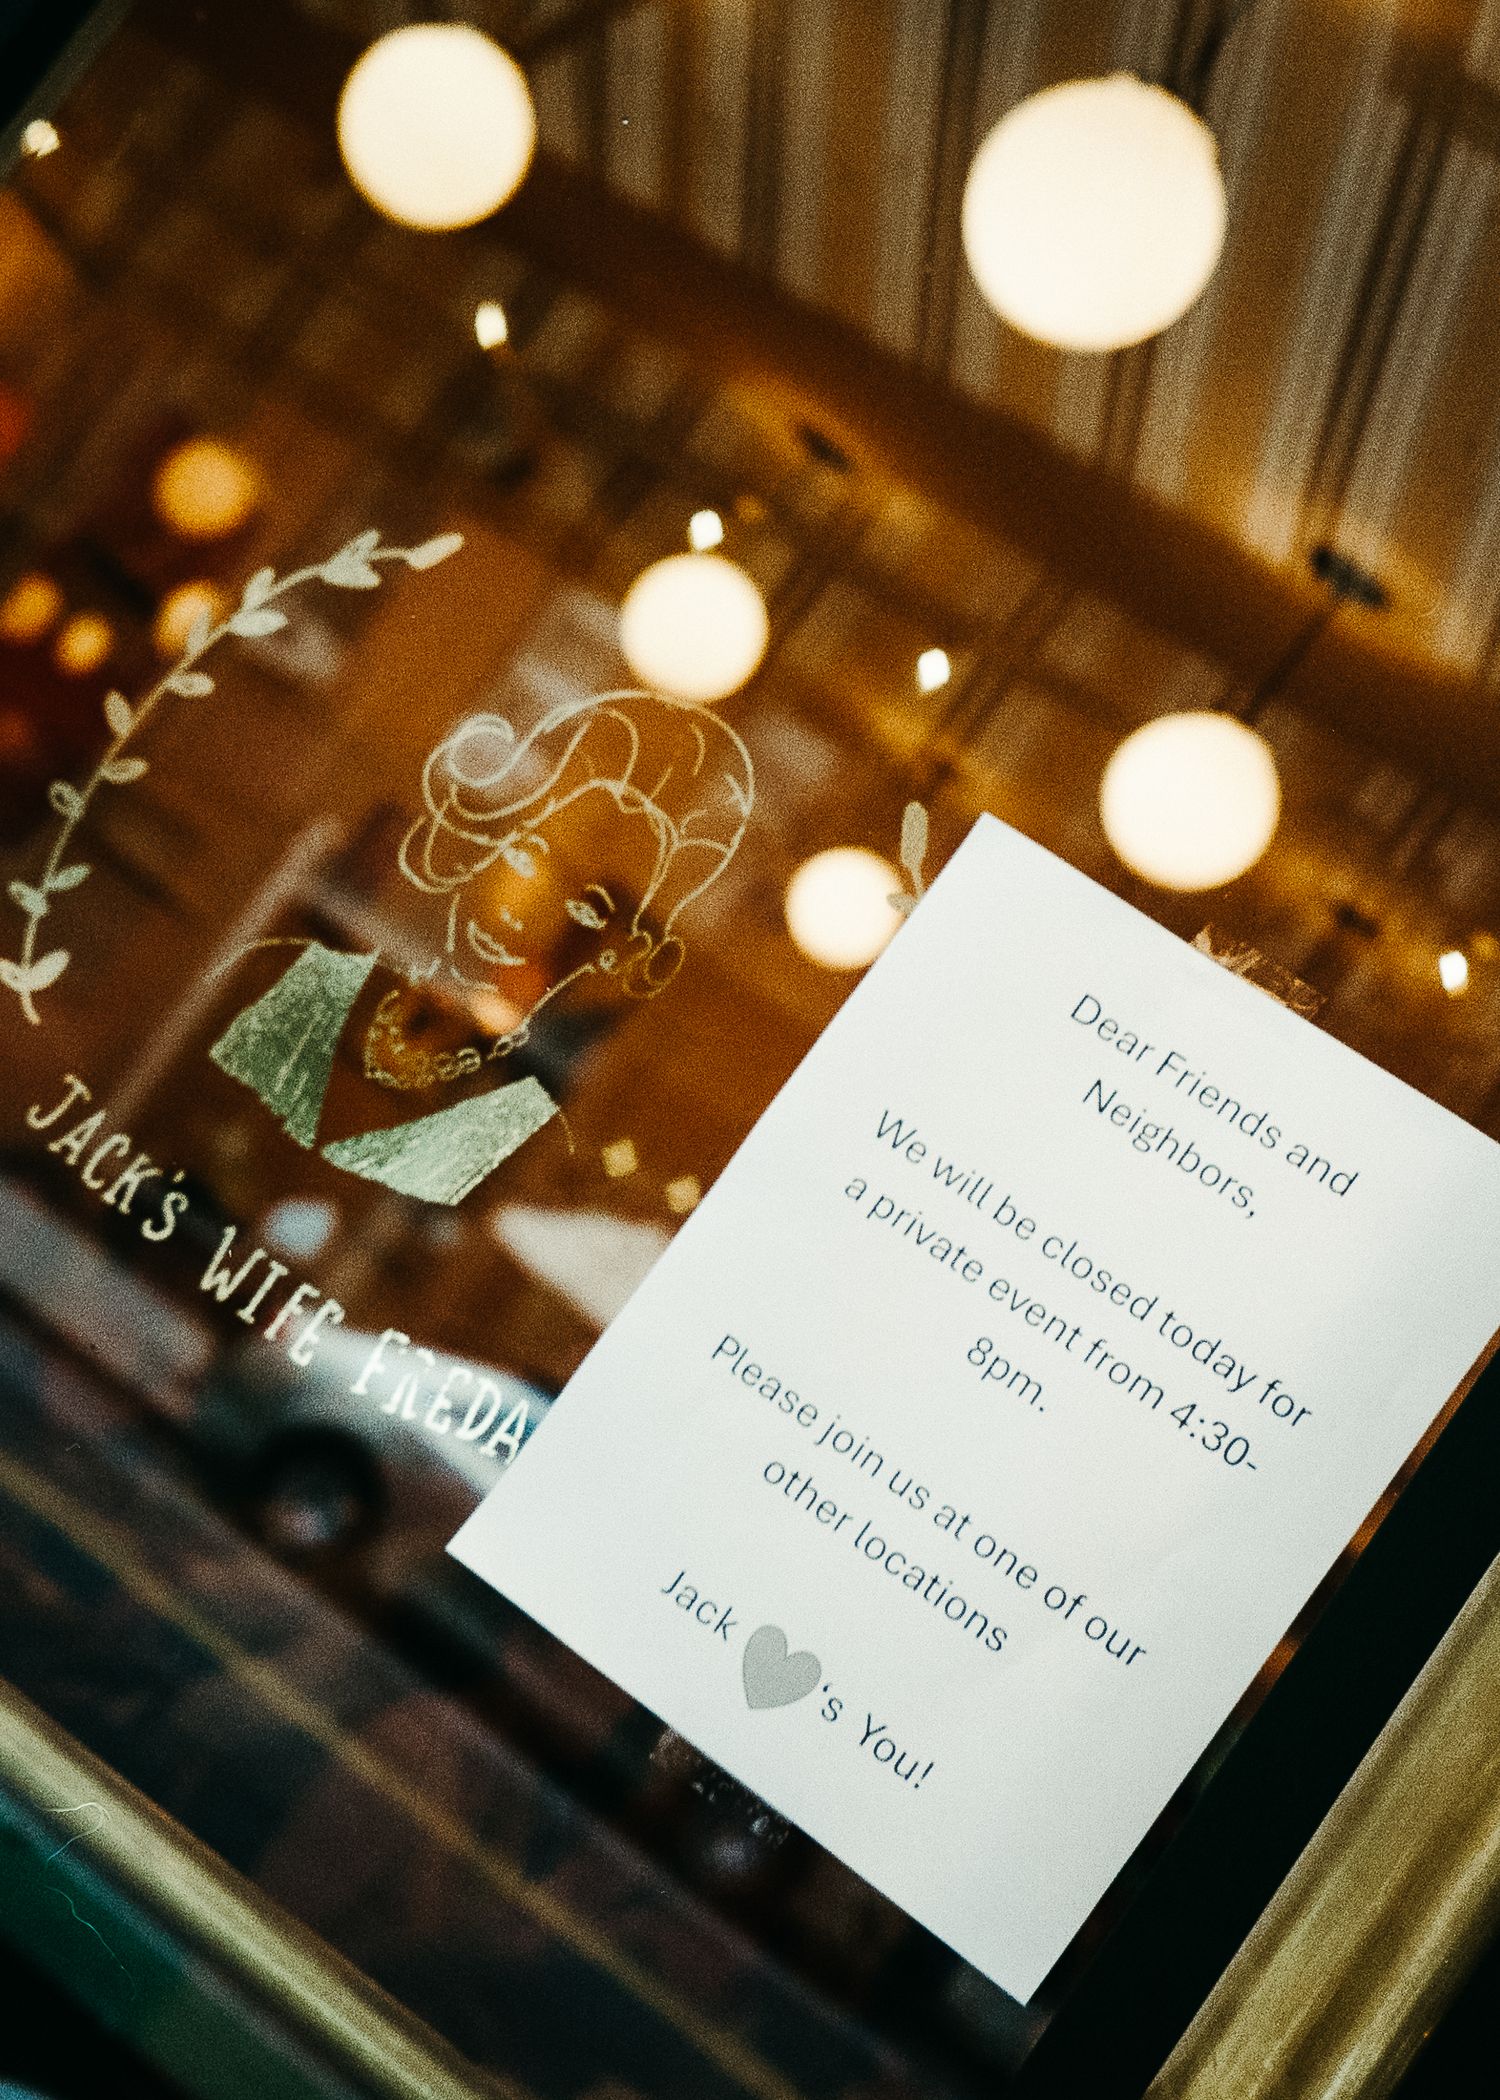 JACK'S WIFE FREDA
Dear Friends and
Neighbors,
We will be closed today for
a private event from 4:30-
8pm.
Please join us at one of our
other locations
Jack 🩶's You!